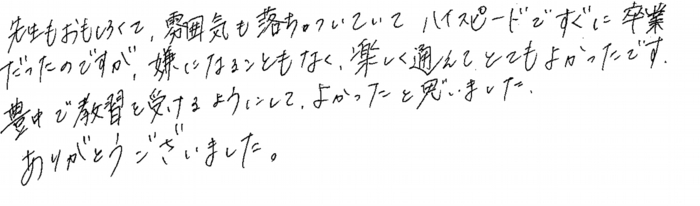 先生もおもしろくて、雰囲気も落ちついていて ハイスピードですぐに卒業
だったのですが、嫌になることもなく、楽しく通えて とてもよかったです.
豊中で教習を受けるようにして、よかったと思いました.
ありがとうございました。